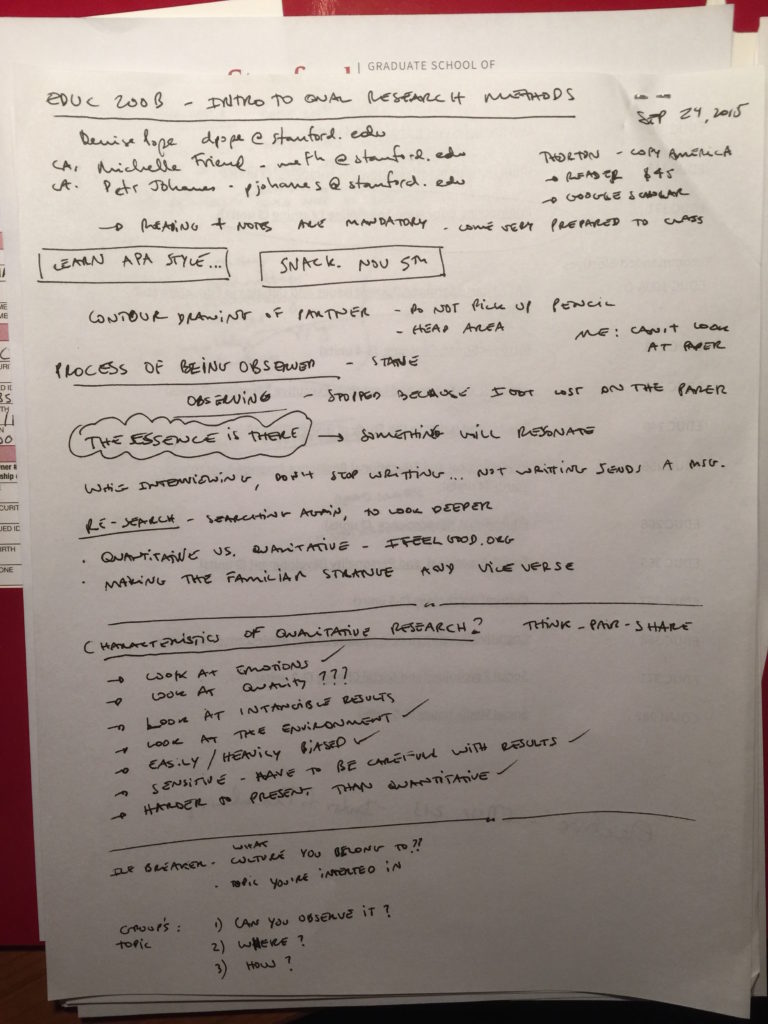 GRADUATE SCHOOL OF
EDUC 200B - INTRO TO QUAL RESEARCH METHODS
SEP 24, 2015
Denise Pope dpope@stanford.edu
CA. Michelle Friend - mefh@stanford.edu
CA. Petr Johanes - pjohanes@stanford.edu
THORTON - COPY AMERICA
→ READER $45
→ GOOGLE SCHOLAR
→ READING + NOTES ARE MANDATORY - COME VERY PREPARED TO CLASS
LEARN APA STYLE...
SNACK. NOV 5TH
CONTOUR DRAWING OF PARTNER - DO NOT PICK UP PENCIL
- HEAD AREA
ME: CAN'T LOOK
AT PAPER
PROCESS OF BEING OBSERVED - STARE
OBSERVING - STOPPED BECAUSE I GOT LOST ON THE PAPER
THE ESSENCE IS THERE → SOMETHING WILL RESONATE
WHIE INTERVIEWING, DON'T STOP WRITTING... NOT WRITTING SENDS A MSG.
RE-SEARCH - SEARCHING AGAIN, TO LOOK DEEPER
· QUANTITATIVE VS. QUALITATIVE - IFEELGOOD.ORG
· MAKING THE FAMILIAR STRANGE AND VICE VERSE
CHARACTERISTICS OF QUALITATIVE RESEARCH? THINK-PAIR-SHARE
→ LOOK AT EMOTIONS ✓
→ LOOK AT QUALITY ???
→ LOOK AT INTANGIBLE RESULTS
→ LOOK AT THE ENVIRONMENT ✓
→ EASILY / HEAVILY BIASED ✓
→ SENSITIVE - HAVE TO BE CAREFUL WITH RESULTS ✓
→ HARDER TO PRESENT THAN QUANTITATIVE ✓
WHAT
ICE BREAKER - CULTURE YOU BELONG TO??
· TOPIC YOU'RE INTERTED IN
GROUP'S:
TOPIC
1) CAN YOU OBSERVE IT?
2) WHERE?
3) HOW?